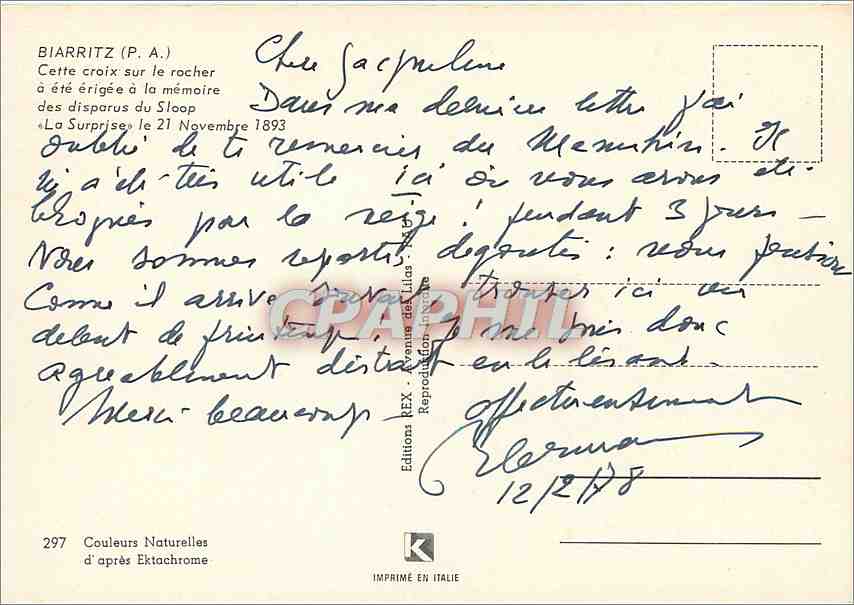 BIARRITZ (P. A.)
Cette croix sur le rocher
à été érigée à la mémoire
des disparus du Sloop
«La Surprise» le 21 Novembre 1893
Chère Jacqueline
Dans ma dernière lettre j'ai
oublié de te remercier du Menuhin. Il
m'a été très utile ici où nous avons été
bloqués par la neige! pendant 3 jours -
Nous sommes repartis dégoutés : nous pensions
Comme il arrive souvent trouver ici un
début de printemps! Je me suis donc
agréablement distrait en le lisant -
Merci beaucoup -
affectueusement
12/2/78
Editions REX - Avenue des Lilas - PAU
Reproduction Interdite
CPAPHIL
297 Couleurs Naturelles
d'après Ektachrome
K
IMPRIMÉ EN ITALIE